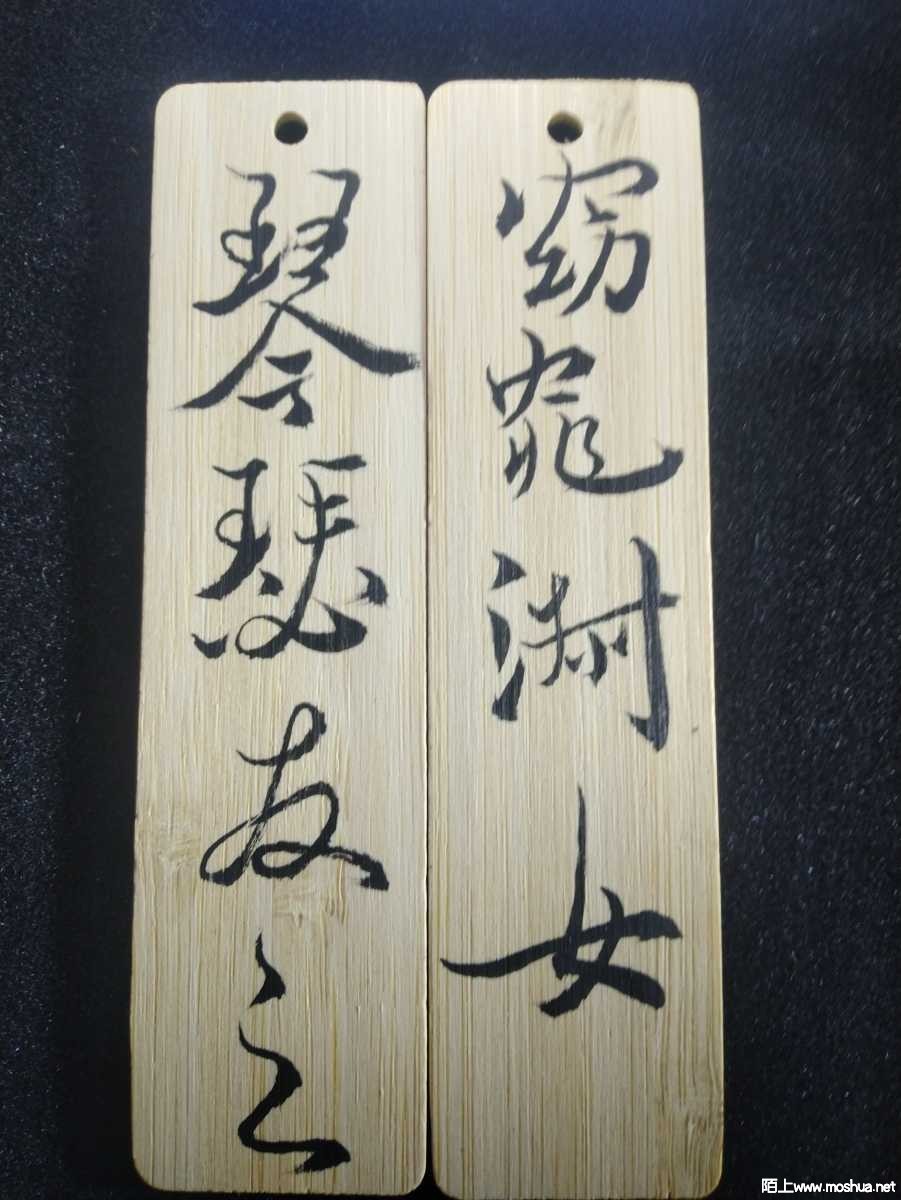 窈窕淑女
琴瑟友之
陌上www.moshua.net